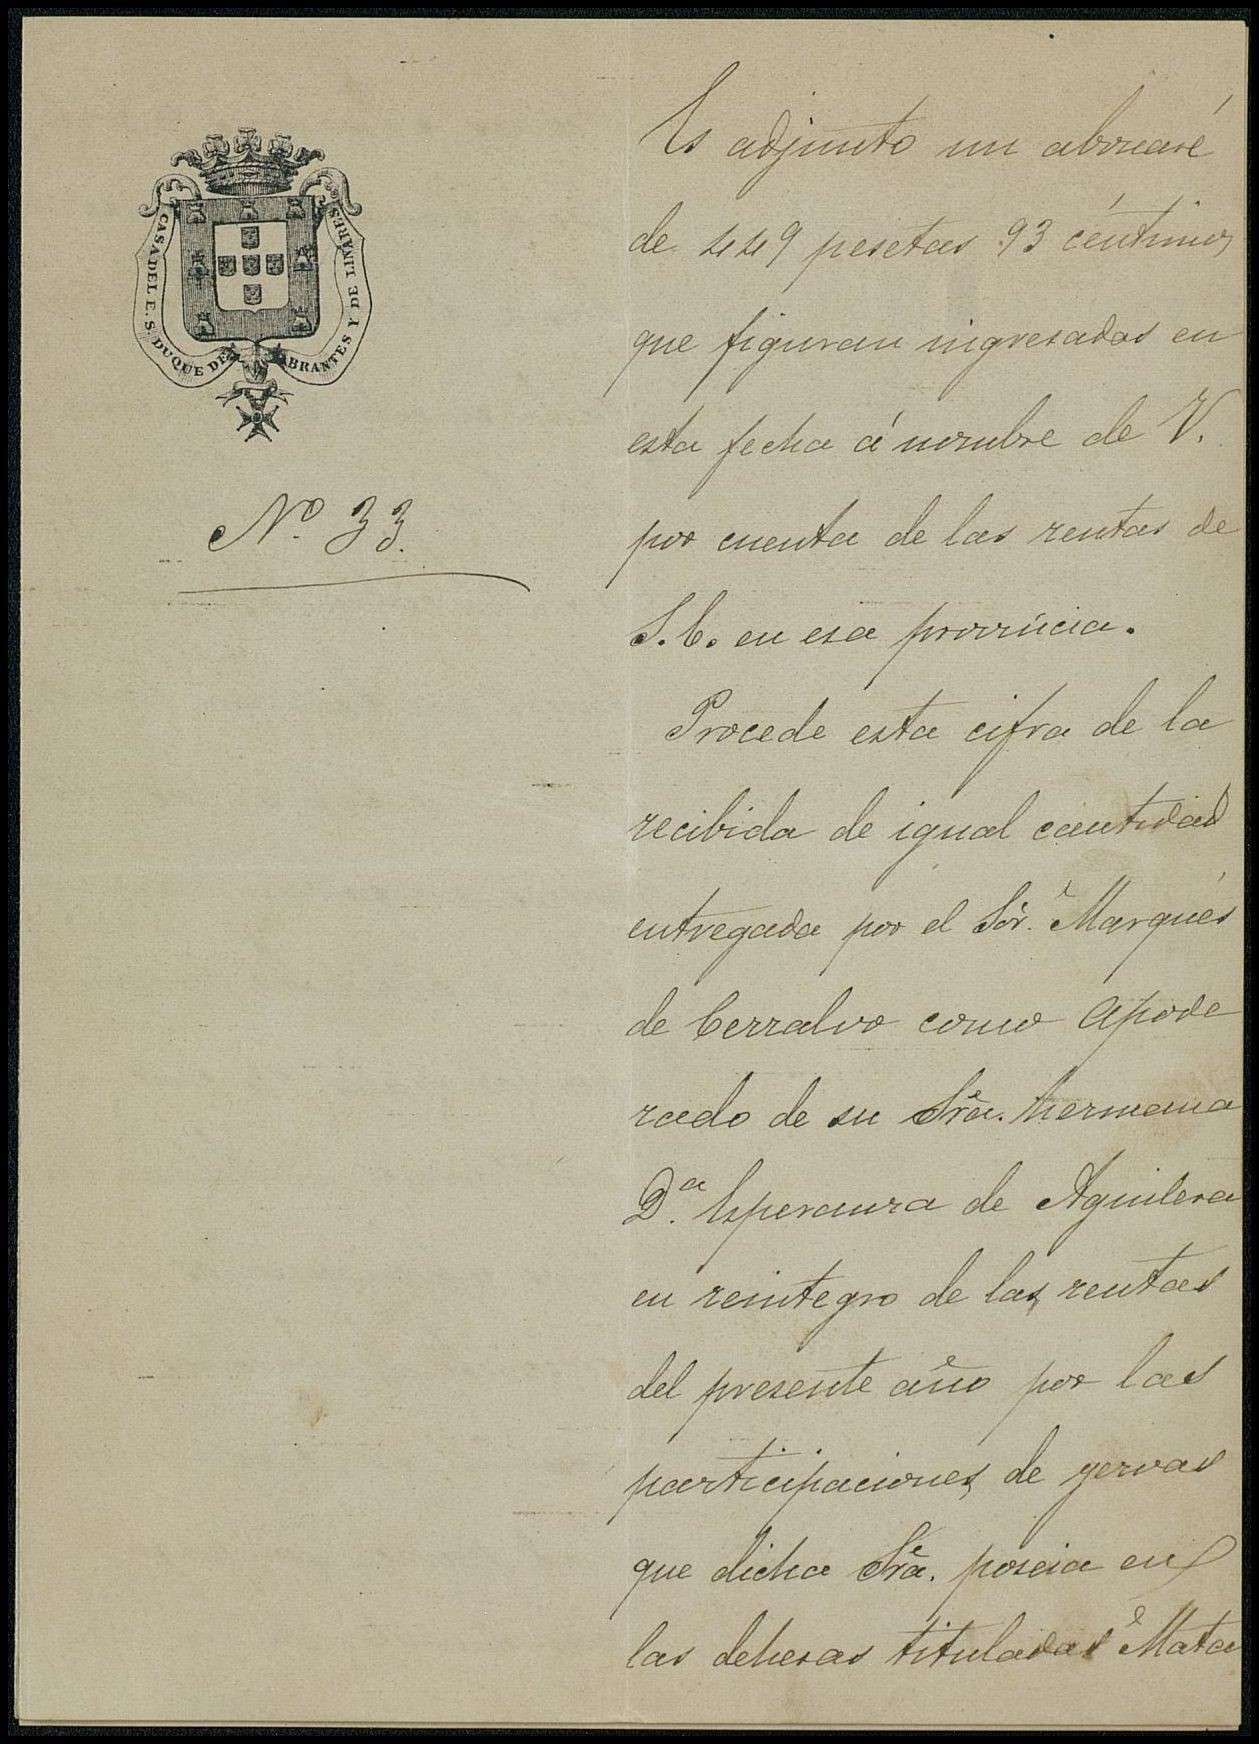 CASA DEL E. S. DUQUE DE ABRANTES Y DE LINARES
No. 33.
Es adjunto un abonaré
de 449 pesetas 93 céntimos
que figuran ingresadas en
esta fecha á nombre de V.
por cuenta de las rentas de
S.E. en esa provincia.
Procede esta cifra de la
recibida de igual cantidad
entregada por el Sôr. Marqués
de Cerralvo como apode
rado de su Sra. hermana
D.ª Esperanza de Aguilera
en reintegro de las rentas
del presente año por las
participaciones de yervas
que dicha Sra. poseia en
las dehesas tituladas Mata